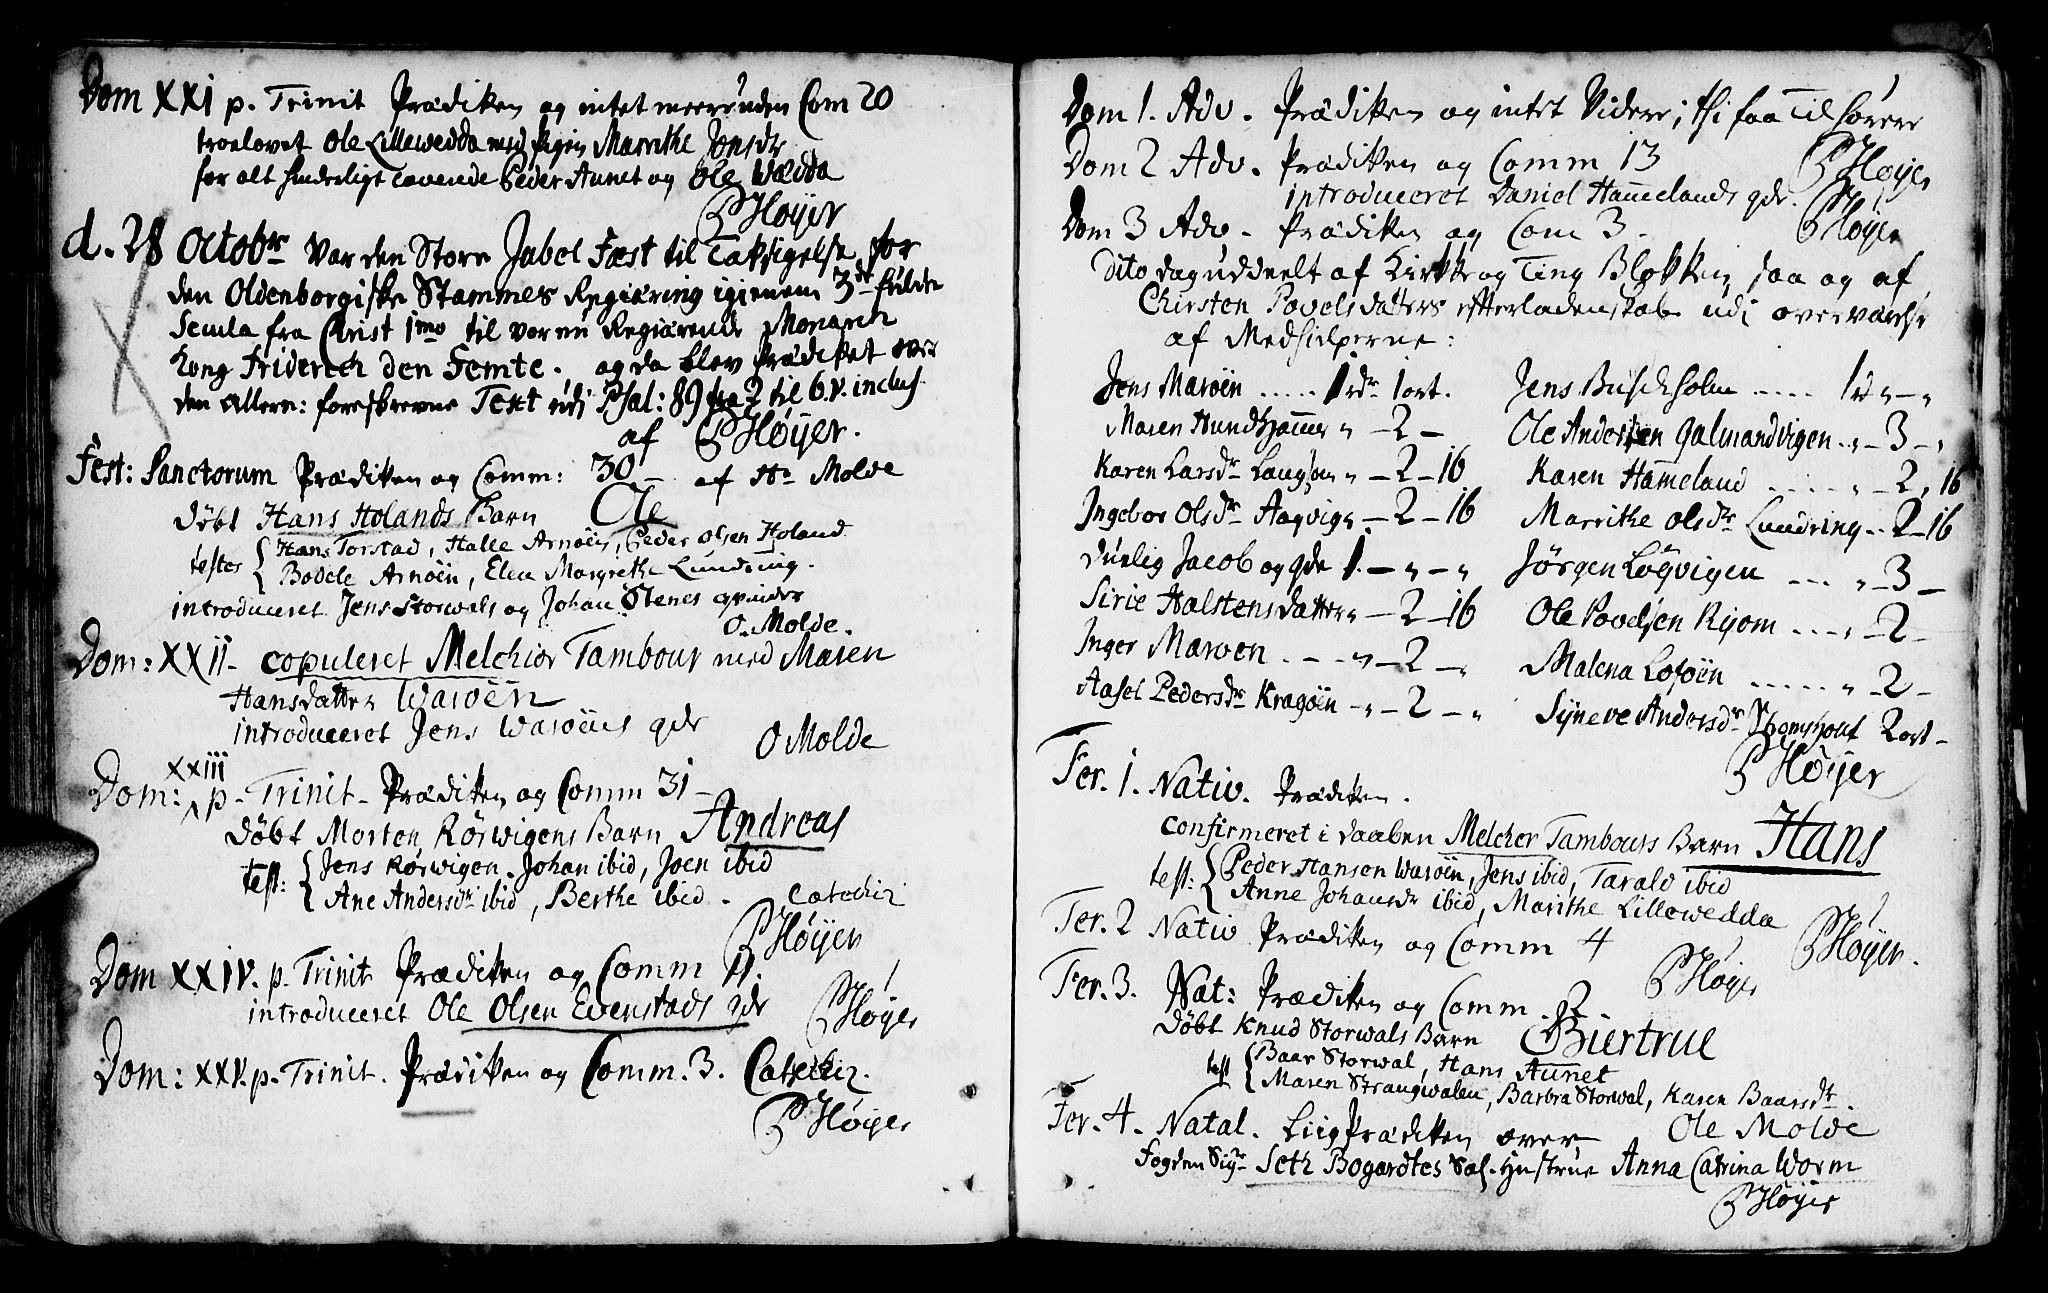 Dom XXI p. Trinit Prædiken og intet meere uden Com 20
troelovet Ole Lillewedda med pigen Marrithe Jonsdr
for alt hinderligt Cavende Peder Aunet og Ole Wædda
PHøyer
d. 28 Octobr Var den Store Jubel Fæst til Taksigelse for
den Oldenborgiske Stammes Regiæring igienem 3de fulde
Secula fra Christ 1mo til voren Regiærende Monarch
Kong Friderich den Femte. og da blev Prædiket over
den allern: foreskrevne Text udi Psal: 89 fra 2 til 6 v. inclus.
af PHøyer.
Fest: Sanctorum Prædiken og Comm: 30 — af Hr Molde
Døbt Hans Holands Barn Ole
testes Hans Torstad, Halle Arnøen, Peder Olsen Holand
Bodele Arnøen, Elen Margrethe Lundring.
introduceret Jens Storwals og Johan Stenes qvinder
O. Molde.
Dom: XXII — copuleret Melchior Tambour med Maren
Hansdatter Warøen
introduceret Jens Warøens qdr
O Molde
XXIII
Dom: p. Trinit — Prædiken og Comm 31 —
Døbt Morten Rørwigens Barn Andreas
test: Jens Rørwigen. Johan ibid, Joen ibid
Ane Andersdr ibid, Berthe ibid. Catechiz
PHøyer
Dom XXIV. p. Trinit Prædiken og Comm 11.
introduceret Ole Olsen Evenstads qdr PHøyer
Dom: XXV. p. Trinit. Prædiken og Comm. 3. Catechiz.
PHøyer
Dom 1. Adv. Prædiken og intet Videre; thi faa Tilhørere
PHøyer
Dom 2 Adv. Prædiken og Comm 13
introduceret Daniel Hammelands qdr. PHøyer
Dom 3 Adv — Prædiken og Com 3 —
Dito dag uddeelt af Kirke og Ting Blokken, saa og af
Chirsten Povelsdatters efterladenskab udi overværelse
af Medhielperne:
Jens Marøen ..... 1 rdr 1 ort. Jens Buschholm .... 1 rd „ — „
Maren Hundhammer „ — 2 — Ole Andersen Galmandvigen .. „ — 3 — „
Karen Larsdr Langsøn „ — 2 — 16 Karen Hameland ..... „ — 2, 16
Ingebor Olsdr Aagvig „ — 2 — 16 Marrithe Olsdr Lundring .. 2 — 16
Duelig Jacob og qde 1. — „ — „ Jørgen Løgvigen ... „ — 3 —
Sirie Halstensdatter „ — 2 — 16 Ole Povelsen Ryom .... „ — 2 —
Inger Marøen . — — „ — 2 — „ Malena Loføen ..... „ — 2 —
Aasel Pedersdr Kragøen — „ — 2 — „ Syneve Andersdr 2 ort —
PHøyer
Fer. 1. Nativ. Prædiken.
confirmeret i Daaben Melcher Tambours Barn Hans
test: Peder Hansen Warøen, Jens ibid, Tarald ibid
Anne Johansdr ibid, Marithe Lillewedda
PHøyer.
Fer. 2 Nativ Prædiken og Comm 4
PHøyer
Fer. 3. Nat: Prædiken og Comm. 2.
Døbt Knud Storwals Barn Giertrue
test Baar Storwal, Hans Aunet
Maren Strangwalen, Barbra Storwal, Karen Baarsdr.
Ole Molde
Fer. 4. Natal. Liig Prædiken over
Fogden Sigr Seth Bogardtes Sal. Hustrue Anna Catrina Worm
PHøyer